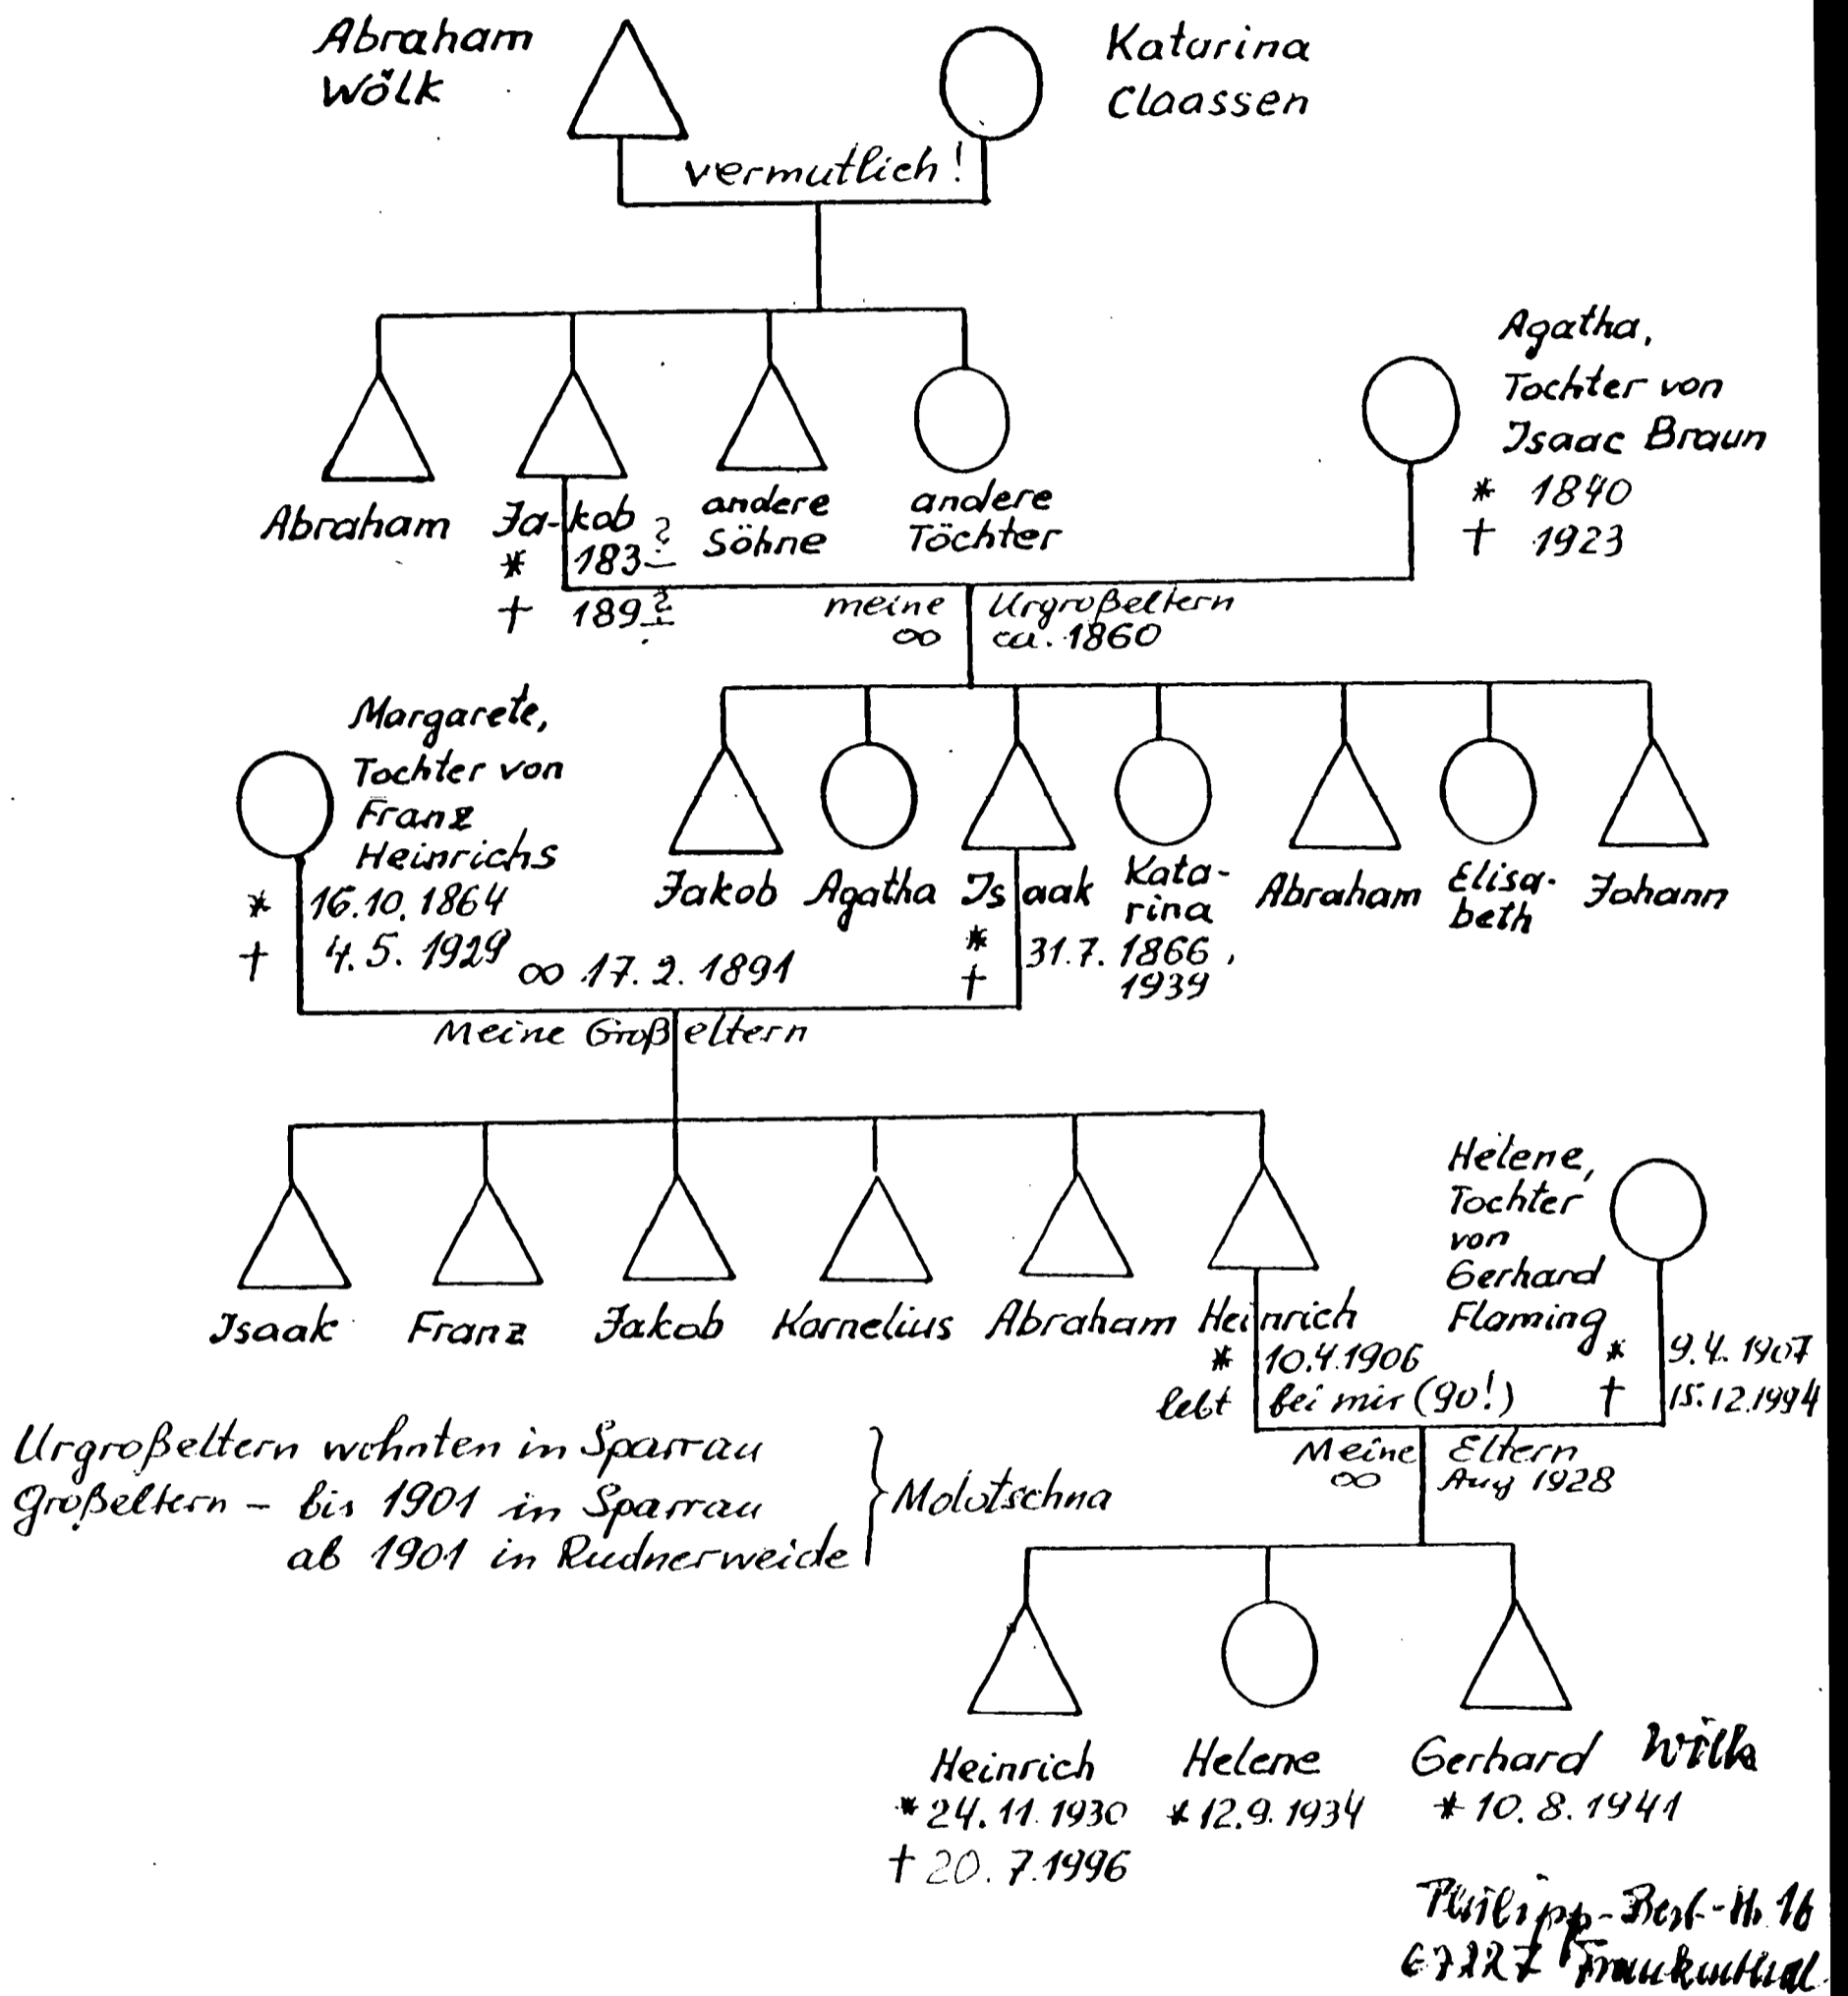 Abraham
Wölk
Katarina
Claassen
vermutlich!
Agatha,
Tochter von
Isaac Braun
* 1840
† 1923
Abraham
Ja-kob
* 183?
† 189?
andere
Söhne
andere
Töchter
meine Urgroßeltern
∞ ca. 1860
Margarete,
Tochter von
Franz
Heinrichs
* 16.10.1864
† 4.5.1929
∞ 17.2.1891
Jakob
Agatha
Isaak
* 31.7.1866
† 1939
Kata-
rina
Abraham
Elisa-
beth
Johann
Meine Großeltern
Isaak
Franz
Jakob
Kornelius
Abraham
Heinrich
* 10.4.1906
lebt bei mir (90!)
Helene,
Tochter
von
Gerhard
Flaming
* 9.4.1907
† 15.12.1994
Meine Eltern
∞ Aug 1928
Urgroßeltern wohnten in Sparrau
Großeltern – bis 1901 in Sparrau
ab 1901 in Rudnerweide
} Molotschna
Heinrich
* 24.11.1930
† 20.7.1996
Helene
* 12.9.1934
Gerhard Wölk
* 10.8.1941
Philipp-
67227 Frankenthal